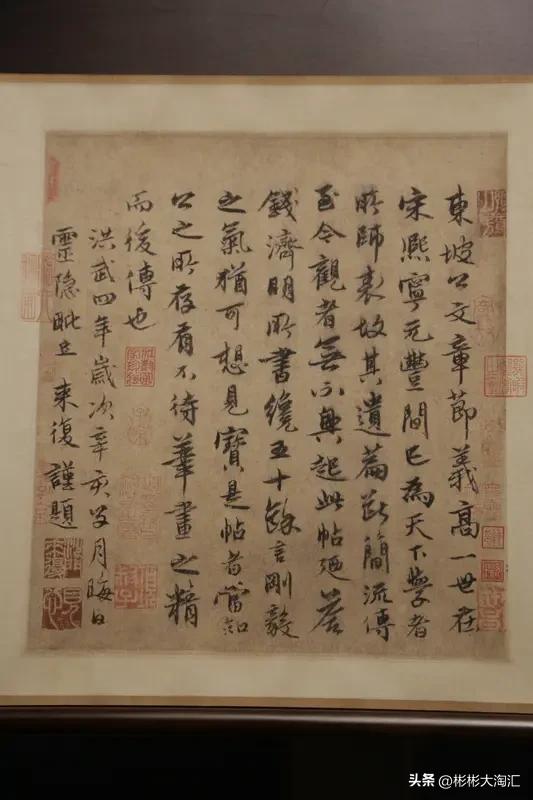 東坡公文章節義高一世在
宋熙寧元豐間已為天下學者
所師表故其遺篇斷簡流傳
至今觀者無不興起此帖廼答
錢濟明所書纔五十餘言剛毅
之氣猶可想見寶是帖者當知
公之所存有不待筆畫之精
而後傳也
洪武四年歲次辛亥
月晦日
靈隱
來復謹題
头条 @彬彬大淘汇